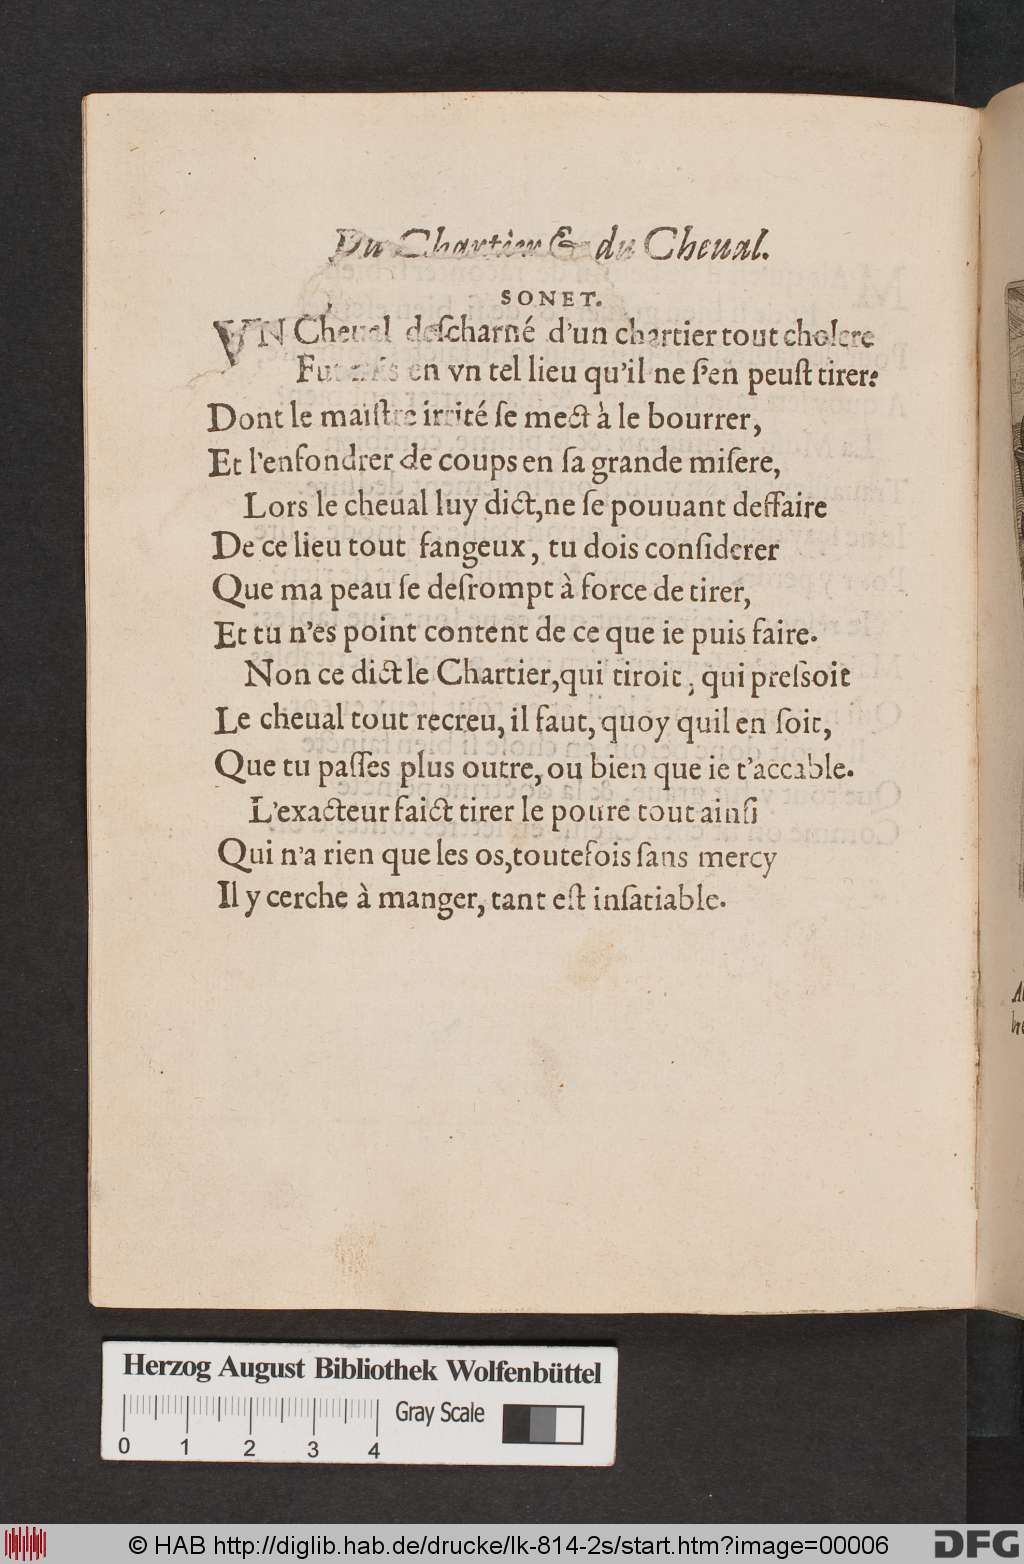 Du Chartier & du Cheual.
SONET.
VN Cheual deſcharné d'un chartier tout cholere
Fut mis en vn tel lieu qu'il ne ſ'en peuſt tirer:
Dont le maiſtre irrité ſe mect à le bourrer,
Et l'enfondrer de coups en ſa grande miſere,
Lors le cheual luy dict, ne ſe pouuant deffaire
De ce lieu tout fangeux, tu dois conſiderer
Que ma peau ſe deſrompt à force de tirer,
Et tu n'es point content de ce que ie puis faire.
Non ce dict le Chartier, qui tiroit, qui preſsoit
Le cheual tout recreu, il faut, quoy quil en ſoit,
Que tu paſſes plus outre, ou bien que ie t'accable.
L'exacteur faict tirer le poure tout ainſi
Qui n'a rien que les os, toutefois ſans mercy
Il y cerche à manger, tant eſt inſatiable.
Herzog August Bibliothek Wolfenbüttel
Gray Scale
0 1 2 3 4
© HAB http://diglib.hab.de/drucke/lk-814-2s/start.htm?image=00006
DFG